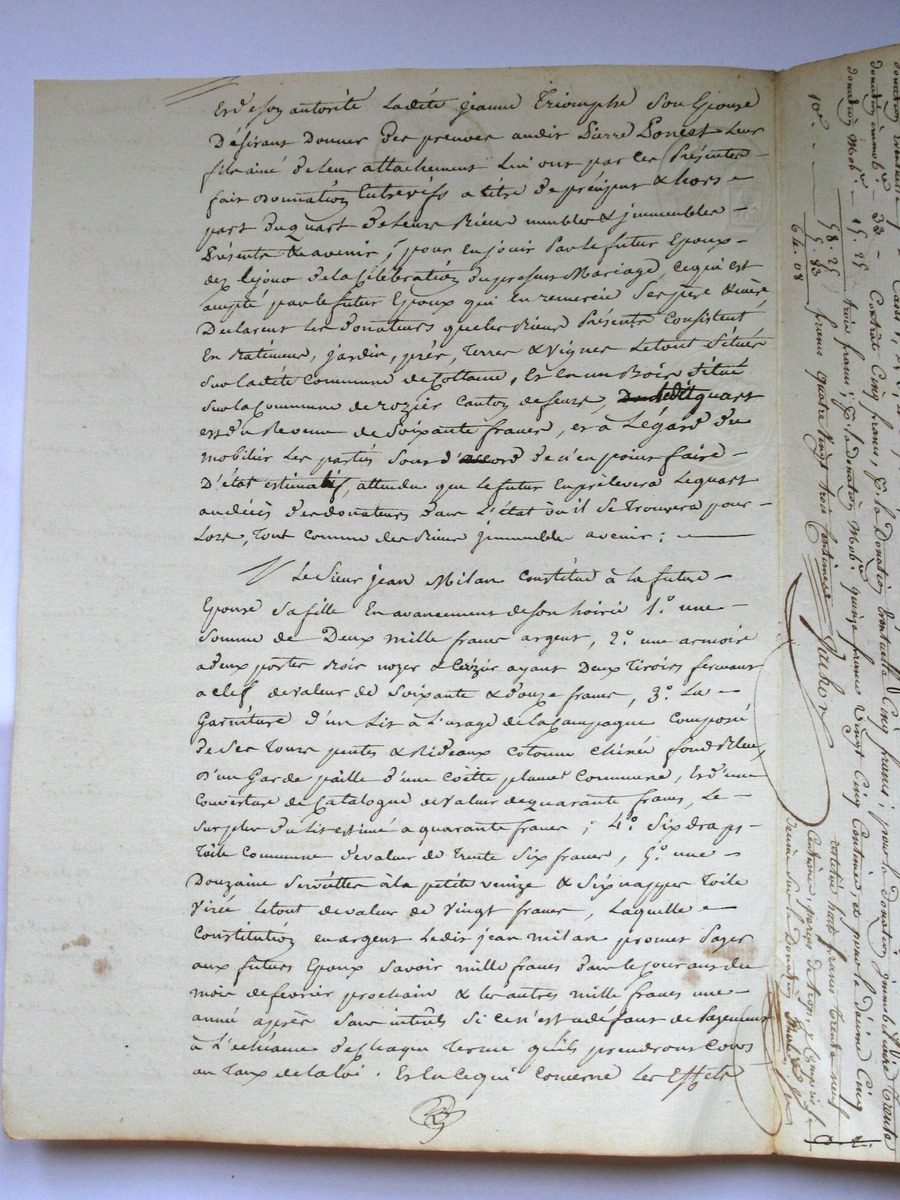 et de son autorité ladite jeanne Triomphe son Epouse
Désirant donner des preuves audit Pierre Poncet Leur
fils ainé de leur attachement lui ont par ces Présentes
fait donnation Entrevifs a titre de préciput & hors
part du quart de leurs Biens meubles & jmmeubles
Présents & avenir, pour en jouir Par le futur Epoux
dez le jour de la Célébration du present Mariage, ce qui est
accepté par le futur Epoux qui En remercie Ses père & mere
Declarent les donateurs que les Biens Présents Consistent
En Batiments, jardin, prés, Terres & Vignes Le tout Situés
sur ladite Commune de Cottance, Et en un Bois Situé
sur la Commune de rozier Canton de feurs, quart
est du Revenu de Soixante francs, et à L'égard du
mobilier les parties Sont d'accord de n'en point faire
D'état estimatif, attendu que le futur En prélevera Le quart
au décès des donateurs dans L'état où il se Trouvera pour
Lors, Tout comme des Biens jmmeuble avenir;
Le Sieur jean Milan Constitue à la future
Epouse Sa fille En avancement de son hoirie 1.º une
Somme de Deux mille francs argent, 2.º une armoire
a deux portes Bois noyer & Cerizier ayant Deux Tiroirs fermant
a clef de valeur de Soixante & douze francs, 3.º La
Garniture d'un Lit à L'usage de la Campagne Composé
de Ses Tours pentes & Rideaux Cotonne chinée fond Bleu,
d'un Garde paille d'une Coëtte plume Commune, Et d'une
Couverture de Catalogne de valeur de quarante francs, Le
Surplus du lit estimé a quarante francs; 4.º Six draps
Toile Commune de valeur de Trente Six francs, 5.º une
Douzaine Serviettes à la petite venize & Six nappes Toile
Le tout de valeur de Vingt francs, Laquelle
Constitution en argent Ledit jean milan promet Payer
aux futurs Epoux Savoir mille francs dans le jour du
mois de fevrier prochain & les autres mille francs une
année après Sans intérêts Si ce n'est a défaut de Payement
à L'echéance de chaque Terme qu'ils prendront Cours
au Taux de la loi. Et en ce qui Concerne Les Effets
donation jmmobi.re 33 - Contrat Cinq francs, p. la Donation Eventuelle Cinq francs; pour la donation jmmobiliaire Trente
donation Mob.re 15. 25 trois francs; p. la donation Mob.re quinze francs Vingt Cinq Centimes, et pour le décime Cinq
58. 25
5. 83
64. 08
francs quatre Vingt trois Centimes
restitué huit francs Trente neuf
Centimes perçus de trop, y Compris le
decime sur la Donation